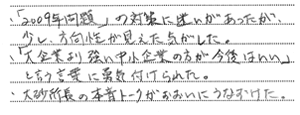 ・「2009年問題」の対策に迷いがあったが、
少し、方向性が見えた気がした。
・「大企業より強い中小企業の方が今後はいい」
という言葉に勇気付けられた。
・大砂所長の本音トークがおおいにうなずけた。